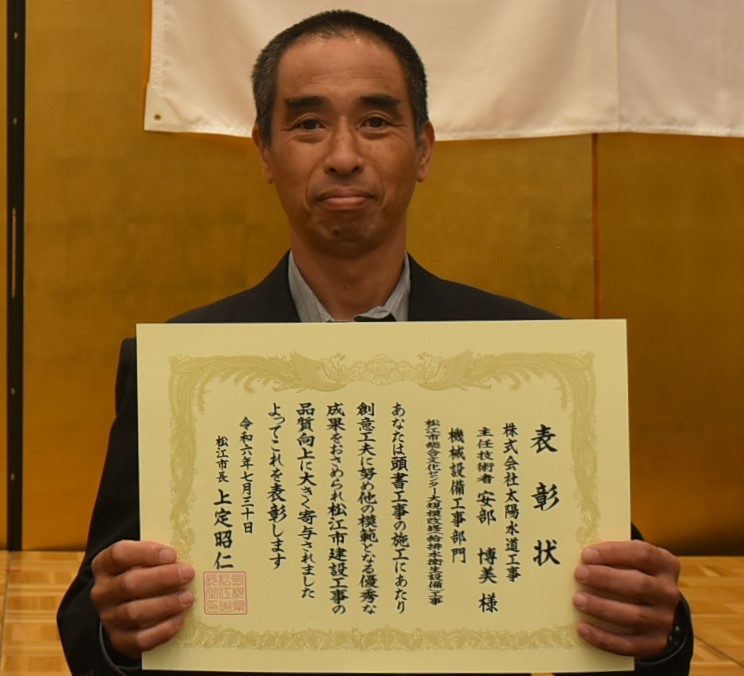 表彰状
株式会社太陽水道工事
主任技術者 安部 博美 様
機械設備工事部門
松江市総合文化センター大規模改修給排水衛生設備工事
あなたは頭書工事の施工にあたり
創意工夫に努め他の模範となる優秀な
成果をおさめられ松江市建設工事の
品質向上に大きく寄与されました
よってこれを表彰します
令和六年七月三十日
松江市長 上定昭仁